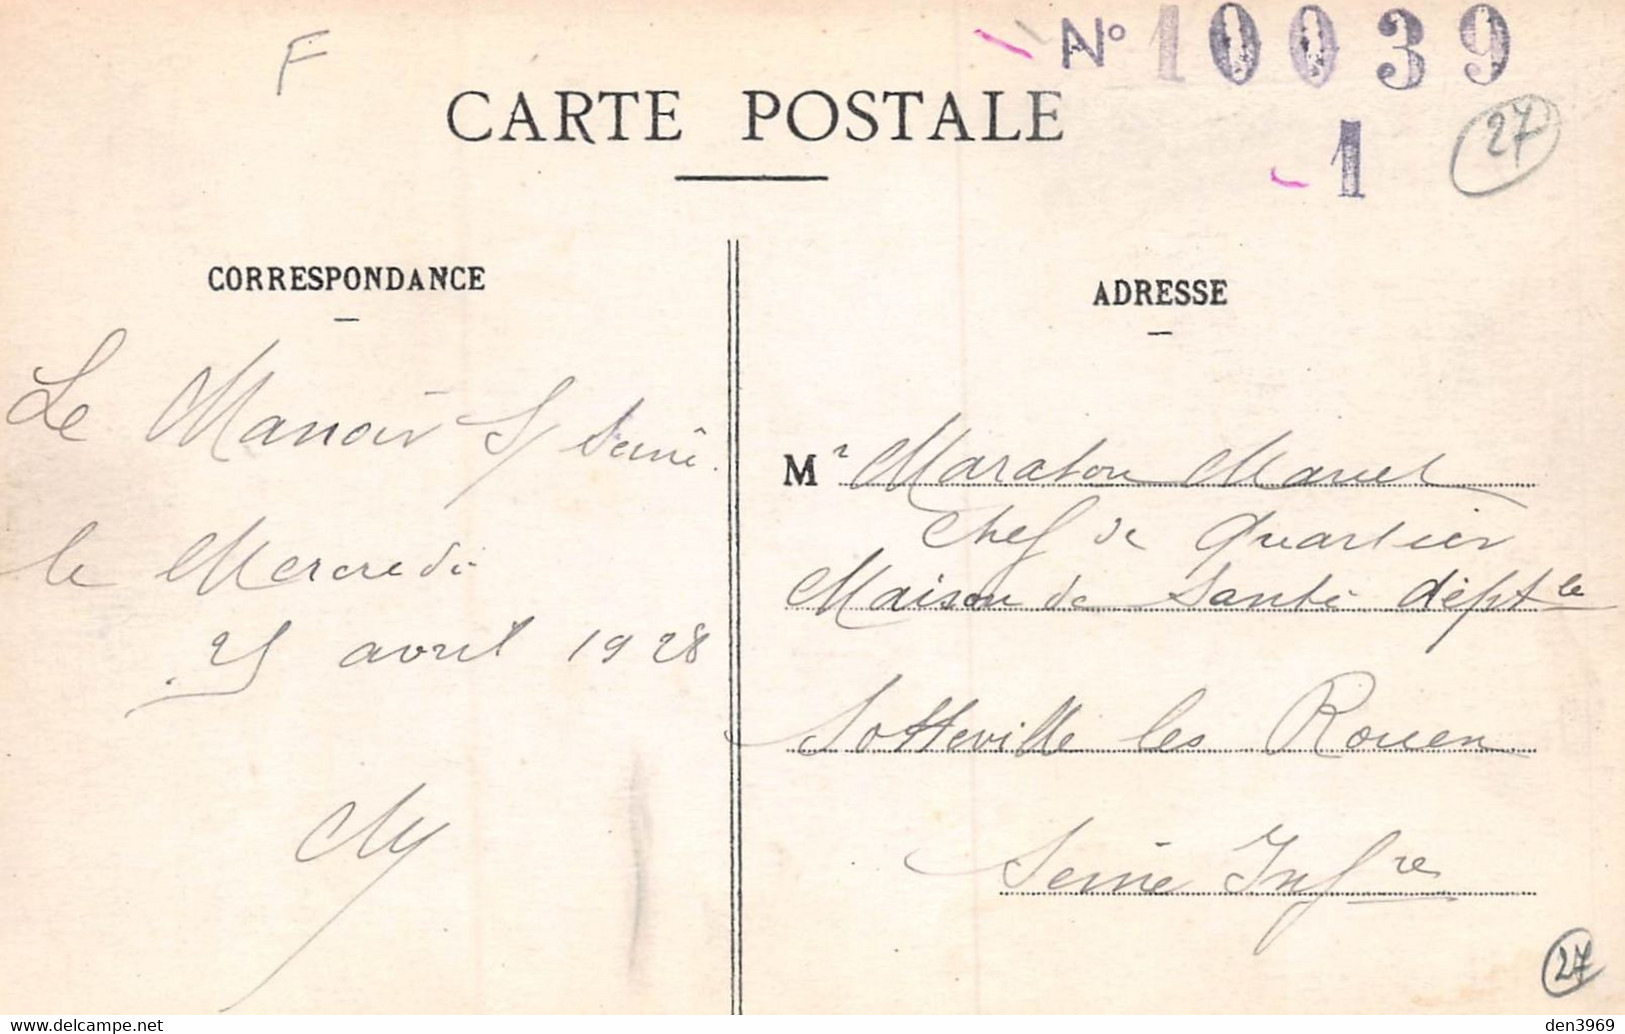 F
N° 10039
CARTE POSTALE
1
27
CORRESPONDANCE
ADRESSE
Le Manoir S/ Seine.
le Mercredi
25 avril 1928
Mr Maraton Marcel
Chef de Quartier
Maison de Santé dépt le
Sotteville les Rouen
Seine Infre
27
den3969